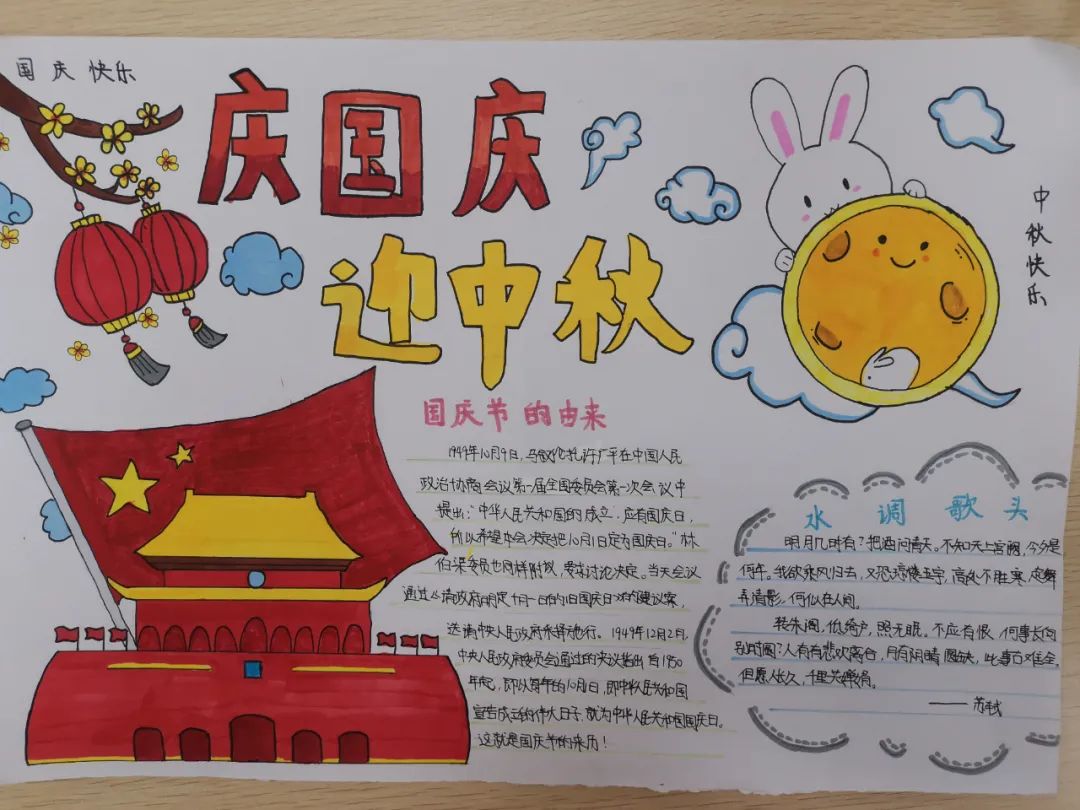 国庆快乐
庆国庆
迎中秋
中秋快乐
国庆节的由来
1949年10月9日，马叙伦托许广平在中国人民
政治协商会议第一届全国委员会第一次会议中
提出："中华人民共和国的成立，应有国庆日，
所以希望本会决定把10月1日定为国庆日。"林
伯渠委员也同样附议，要求讨论决定。当天会议
通过
送请中央人民政府采择施行。1949年12月2日，
中央人民政府委员会通过的决议指出：自1950
年起，即以每年的10月1日，即中华人民共和国
宣告成立的伟大日子，就为中华人民共和国国庆日。
这就是国庆节的来历！
水调歌头
明月几时有？把酒问青天。不知天上宫阙，今夕是
何年。我欲乘风归去，又恐琼楼玉宇，高处不胜寒，起舞
弄清影，何似在人间。
转朱阁，低绮户，照无眠。不应有恨，何事长向
别时圆？人有悲欢离合，月有阴晴圆缺，此事古难全，
但愿人长久，千里共婵娟。
——苏轼